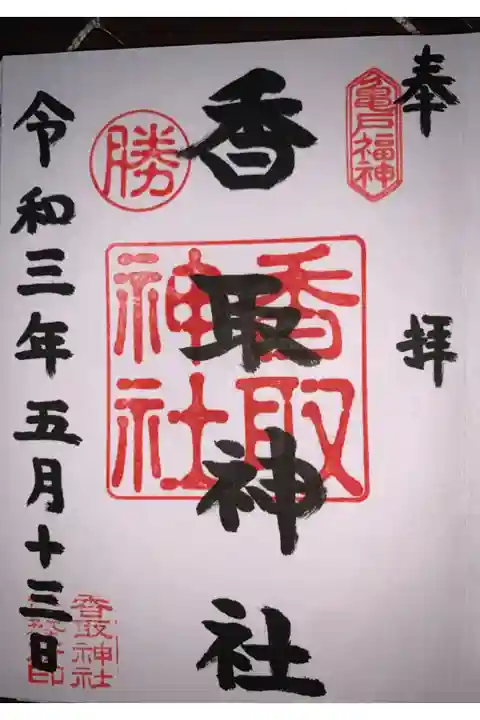 奉拝
亀戸福神
香取神社
香取神社
勝
令和三年五月十三日
香取神社